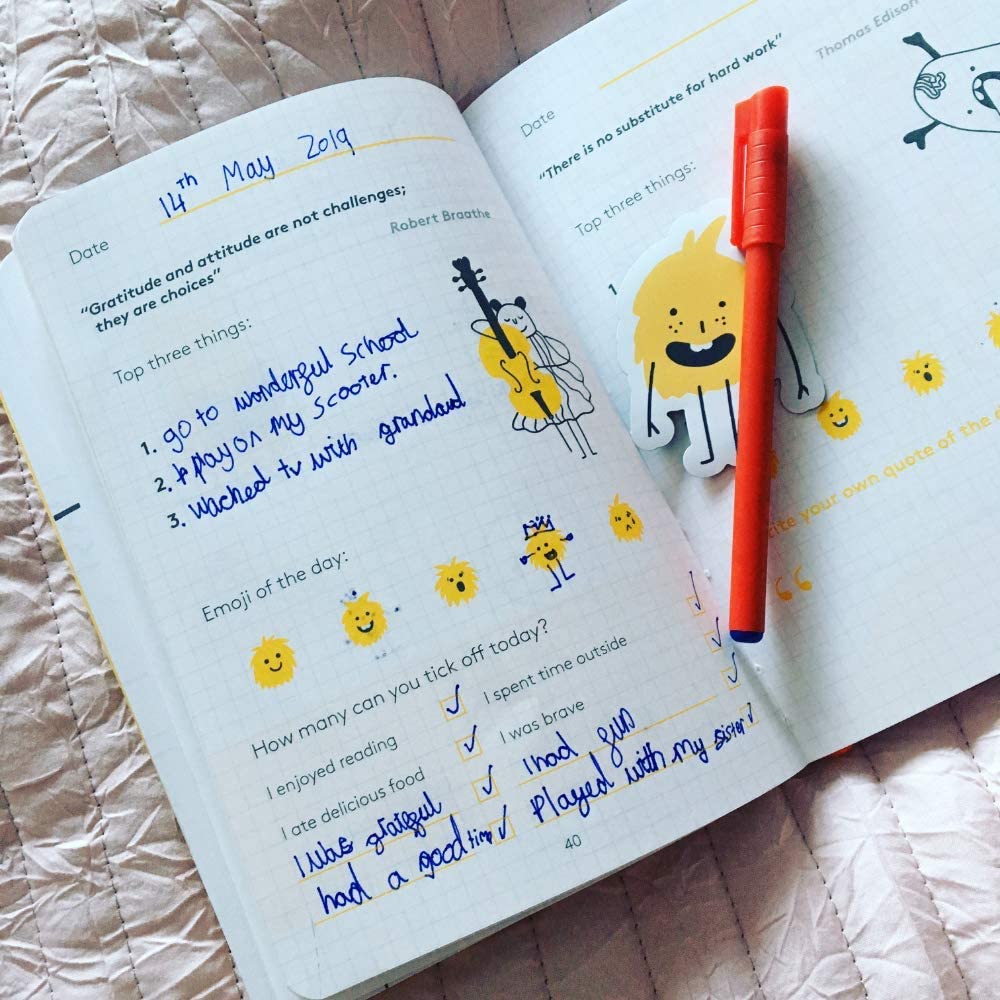 14th May 2019
Date
"Gratitude and attitude are not challenges;
they are choices"
Robert Braathe
Top three things:
1. go to wonderful school
2. play on my scooter.
3. wached tv with grandaud
Emoji of the day:
How many can you tick off today?
I enjoyed reading ✓ I spent time outside ✓
I ate delicious food ✓ I was brave ✓
I was grateful ✓ I had fun ✓
had a good time ✓ Played with my sister ✓
40
Date
"There is no substitute for hard work"
Thomas Edison
Top three things:
1
ite your own quote of the
“